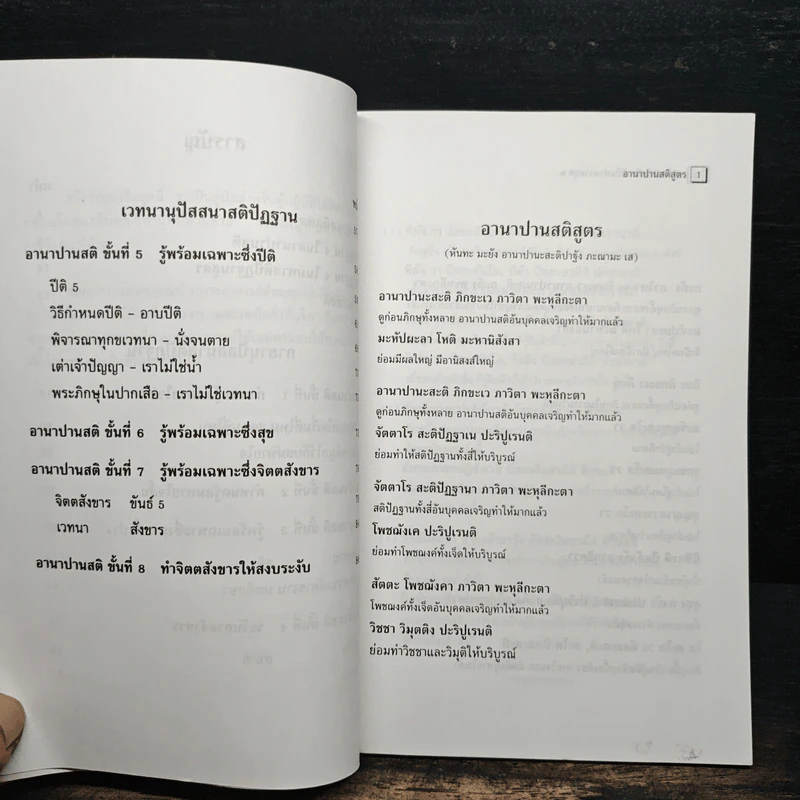 เวทนานุปัสสนาสติปัฏฐาน
อานาปานสติ ขั้นที่ 5 รู้พร้อมเฉพาะซึ่งปีติ
ปีติ 5
วิธีกำหนดปีติ – อาบปีติ
พิจารณาทุกขเวทนา – นั่งจนตาย
เต่าเจ้าปัญญา – เราไม่ใช่น้ำ
พระภิกษุในปากเสือ – เราไม่ใช่เวทนา
อานาปานสติ ขั้นที่ 6 รู้พร้อมเฉพาะซึ่งสุข
อานาปานสติ ขั้นที่ 7 รู้พร้อมเฉพาะซึ่งจิตตสังขาร
จิตตสังขาร ขันธ์ 5
เวทนา สังขาร
อานาปานสติ ขั้นที่ 8 ทำจิตตสังขารให้สงบระงับ
อานาปานสติสูตร 1
อานาปานสติสูตร
(หันทะ มะยัง อานาปานะสะติปาฐัง ภะณามะ เส)
อานาปานะสะติ ภิกขะเว ภาวิตา พะหุลีกะตา
ดูก่อนภิกษุทั้งหลาย อานาปานสติอันบุคคลเจริญทำให้มากแล้ว
มะหัปผะลา โหติ มะหานิสังสา
ย่อมมีผลใหญ่ มีอานิสงส์ใหญ่
อานาปานะสะติ ภิกขะเว ภาวิตา พะหุลีกะตา
ดูก่อนภิกษุทั้งหลาย อานาปานสติอันบุคคลเจริญทำให้มากแล้ว
จัตตาโร สะติปัฏฐาเน ปะริปูเรนติ
ย่อมทำให้สติปัฏฐานทั้งสี่ให้บริบูรณ์
จัตตาโร สะติปัฏฐานา ภาวิตา พะหุลีกะตา
สติปัฏฐานทั้งสี่อันบุคคลเจริญทำให้มากแล้ว
โพชฌังเค ปะริปูเรนติ
ย่อมทำโพชฌงค์ทั้งเจ็ดให้บริบูรณ์
สัตตะ โพชฌังคา ภาวิตา พะหุลีกะตา
โพชฌงค์ทั้งเจ็ดอันบุคคลเจริญทำให้มากแล้ว
วิชชา วิมุตติง ปะริปูเรนติ
ย่อมทำวิชชาและวิมุติให้บริบูรณ์